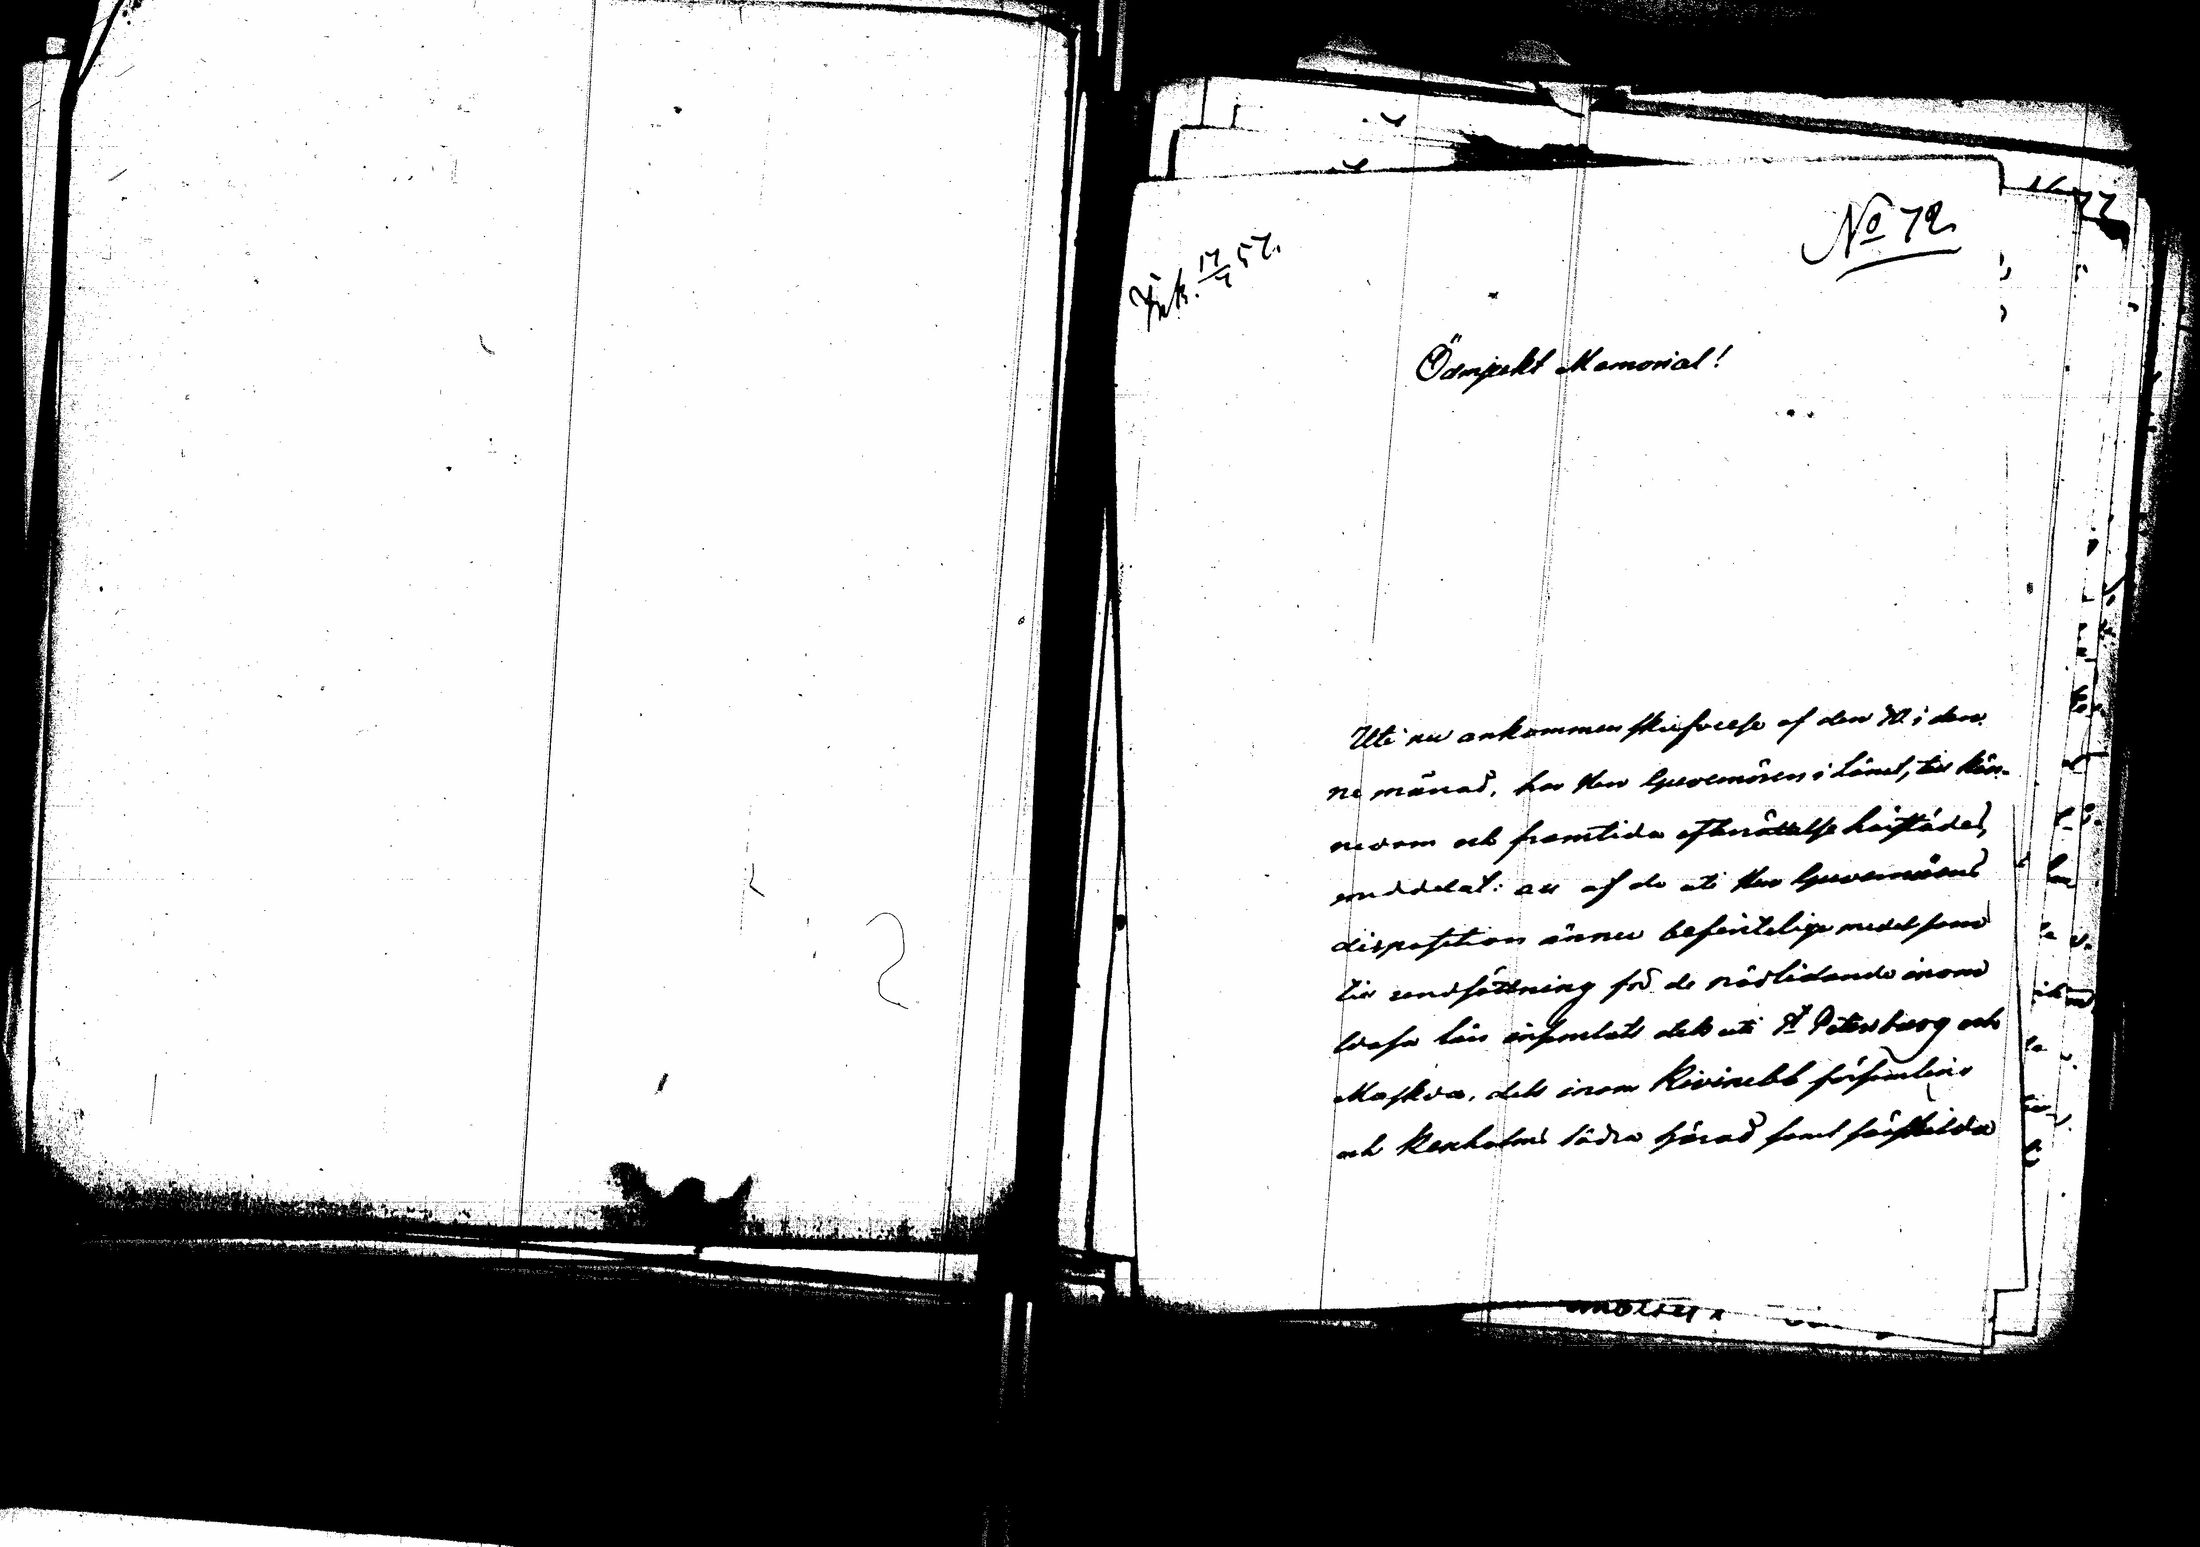 No 72.
Ink. 17/4 57.
Ödmjukt Memorial!
Uti nu ankommen skrifvelse af den 10 i den-
ne månad, har Herr Guvernören i länet, till kän-
nedom och framtida efterrättelse härstädes,
meddelat: att af de uti Herr Guvernörens
disposition ännu befintelige medel som
till undsättning för de nödlidande inom
Wasa län insamlats dels uti St Petersburg och
Moskva, dels inom Kivinebb församling
och Kexholms södra härad samt särskilda